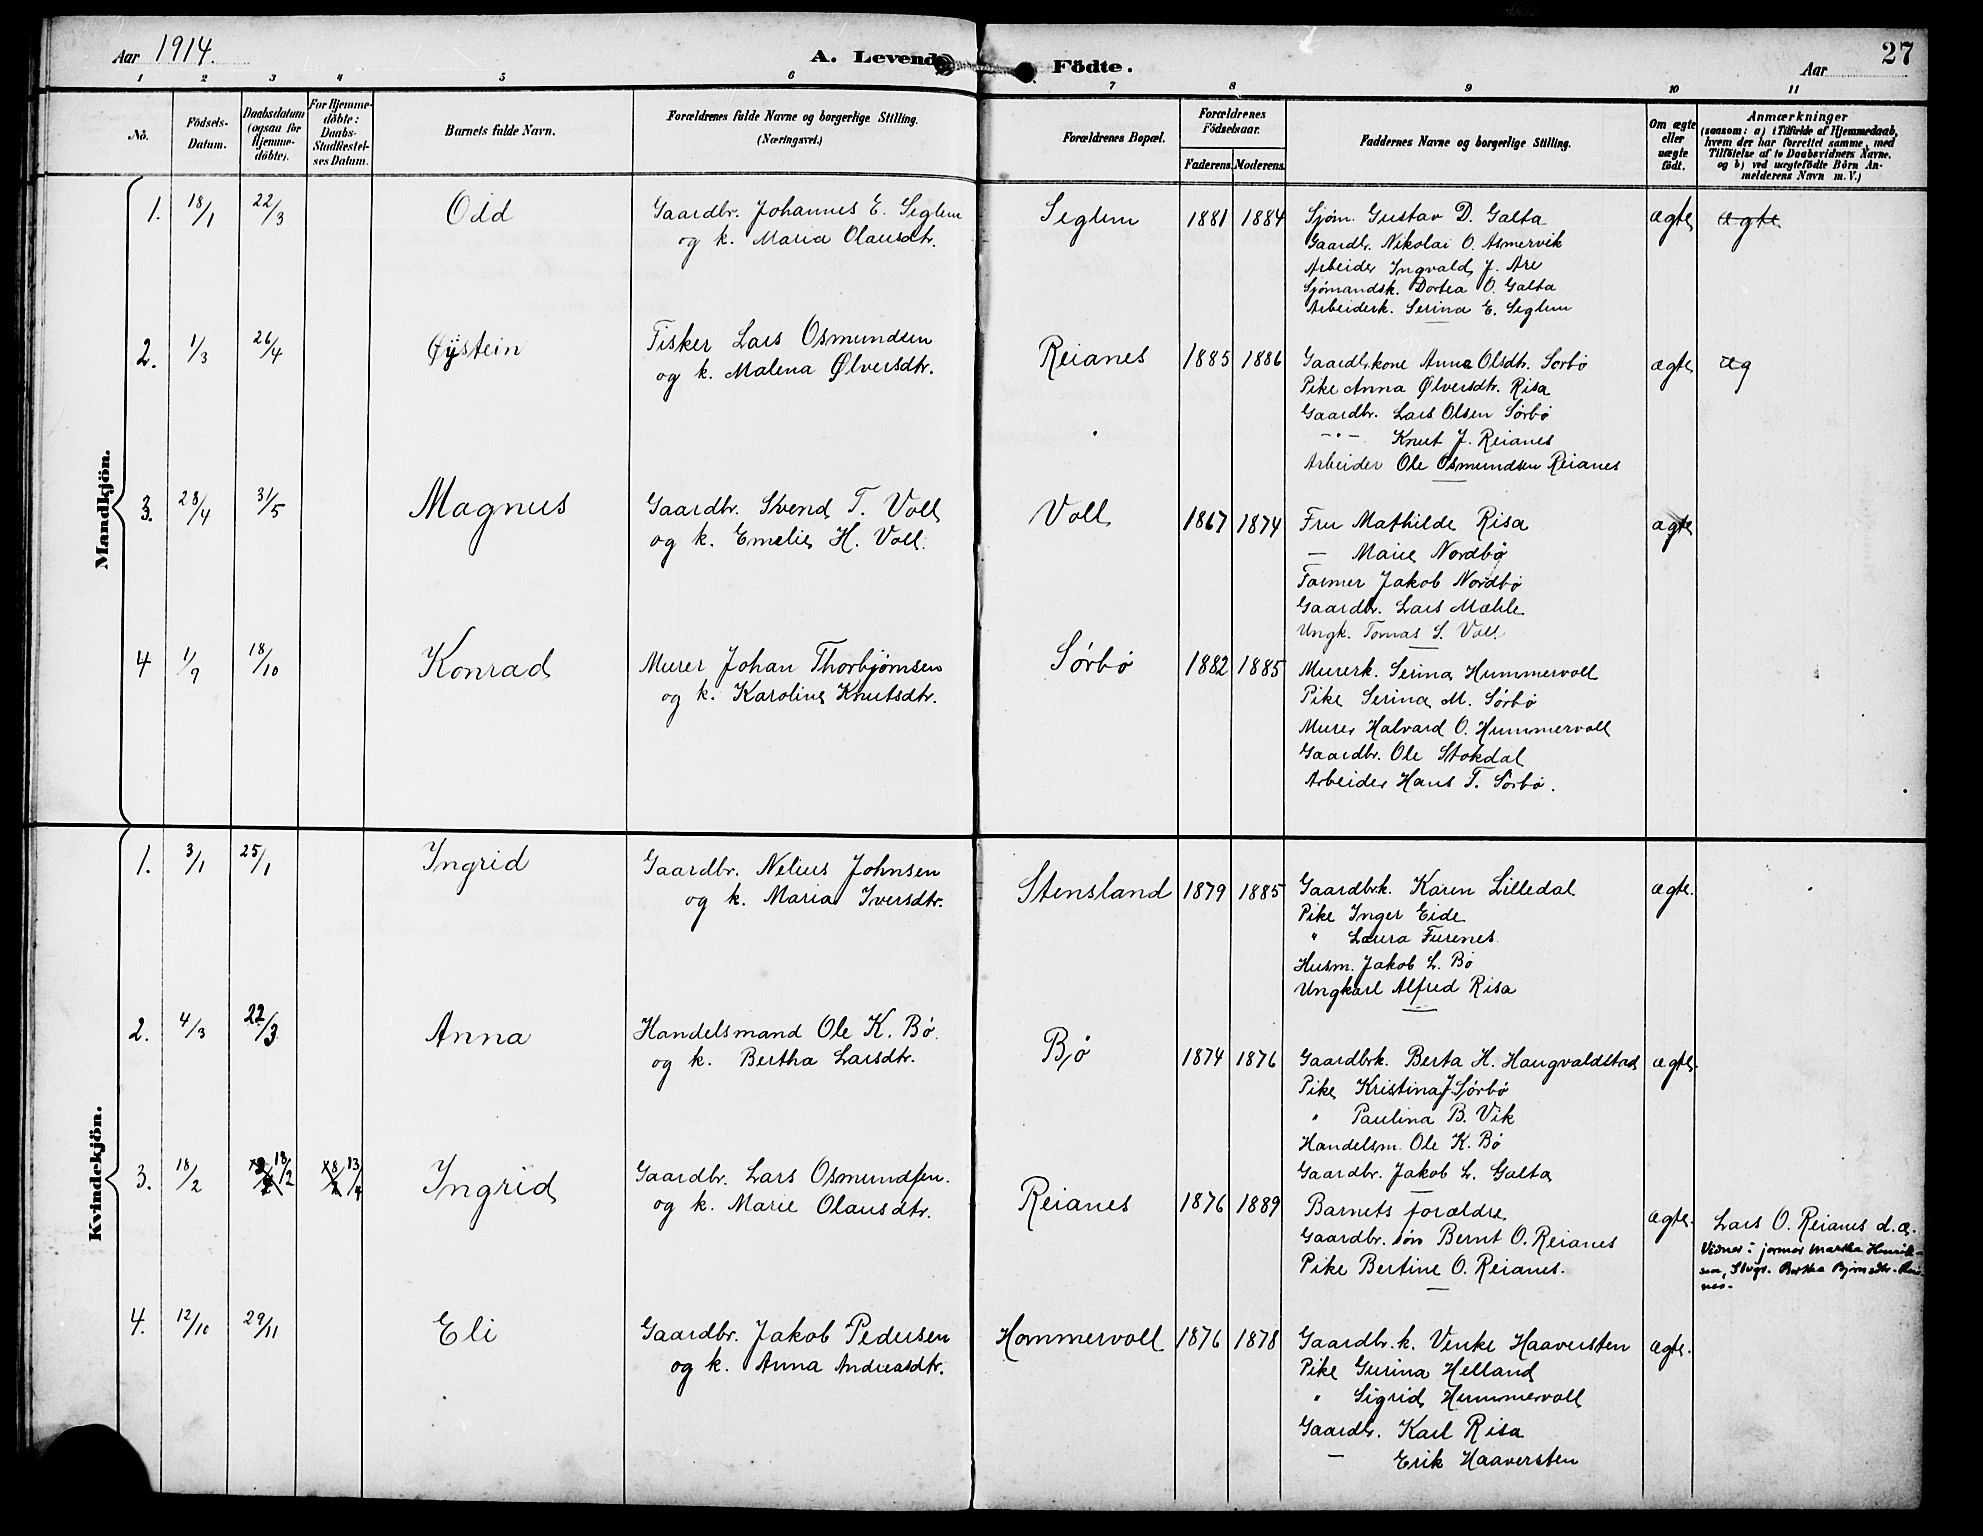 Aar 1914.
A. Levende Födte.
Aar
27
1 2 3 4 5 6 7 8 9 10 11
No.
Födsels-
Datum.
Daabsdatum
(ogsaa for
Hjemme-
döbte).
For Hjemme-
döbte:
Daabs-
Stadfæstel-
ses Datum.
Barnets fulde Navn.
Forældrenes fulde Navne og borgerlige Stilling.
(Næringsvei.)
Forældrenes Bopæl.
Forældrenes
Födselsaar.
Faderens. Moderens.
Faddernes Navne og borgerlige Stilling.
Om ægte
eller
uægte
födt.
Anmærkninger
(saasom: a) i Tilfælde af Hjemmedaab,
hvem der har forrettet samme, med
Tilföielse af to Daabsvidners Navne.
og b) ved uægtefödte Börn An-
melderens Navn m. V.)
Mandkjön.
1. 18/1 22/3 Odd
Gaardbr. Johannes E. Seglem
og k. Maria Olausdtr.
Seglem 1881 1884
Sjøm. Gustav D. Galta
Gaardb. Nikolai O. Asmervik
Arbeider Ingvald J. Are
Sjömandsk. Dortea O. Galta
Arbeiderk. Serina E. Seglem
ægte ægte
2. 1/3 26/4 Øystein
Fisker Lars Osmundsen
og k. Malena Ølversdtr.
Reianes 1885 1886
Gaardb.kone Anna Olsdtr. Sørbö
Pike Anna Ølversdtr. Risa
Gaardbr. Lars Olsen Sørbö
—"— Knut J. Reianes
Arbeider Ole Osmundsen Reianes
ægte æg
3. 28/4 31/5 Magnus
Gaardbr. Svend T. Voll
og k. Emelie H. Voll.
Voll 1867 1874
Fru Mathilde Risa
— Marie Nordbø
Farmer Jakob Nordbø
Gaardbr. Lars Mæhle
Ungk. Tomas S. Voll
ægte
4 1/9 18/10 Konrad
Murer Johan Thorbjørnsen
og k. Karoline Knutsdtr.
Sørbö 1882 1885
Murerk. Serina Hummervoll
Pike Serina M. Sørbø
Murer Halvard O. Hummervoll
Gaardbr. Ole Stokdal
Arbeider Hans T. Sørbø.
Kvindekjön.
1. 3/1 25/1 Ingrid
Gaardbr. Nelius Johnsen
og k. Maria Iversdtr.
Stensland 1879 1885
Gaardbrk. Karen Lilledal
Pike Inger Eide
" Laura Furenes
Husm. Jakob L. Bø
Ungkarl Alfred Risa
ægte.
2. 4/3 22/3 Anna
Handelsmand Ole K. Bö.
og k. Bertha Larsdtr.
Bø 1874 1876
Gaardbrk. Berta H. Haugvaldstad
Pike Kristina J. Sørbø
" Paulina B. Vik
Handelsm. Ole K. Bö
Gaardbr. Jakob L. Galta
ægte.
3. 18/2 18/2 13/4 Ingrid
Gaardbr. Lars Osmundsen.
og k. Marie Olausdtr.
Reianes 1876 1889
Barnets forældre
Gaardbr. søn Bernt O. Reianes
Pike Bertine O. Reianes.
ægte.
Lars O. Reianes d. æ.
Vidner: jormor Martha Henrik-
sen, Bertha Bjørnsdtr. Rei-
nes.
4. 12/10 29/11 Eli
Gaardbr. Jakob Pedersen
og k. Anna Andreasdtr.
Hommervoll 1876 1878
Gaardbr.k. Venke Haaversten
Pike Gurina Helland
" Sigrid Hummervoll
Gaardb. Karl Risa
— Erik Haaversten
ægte.